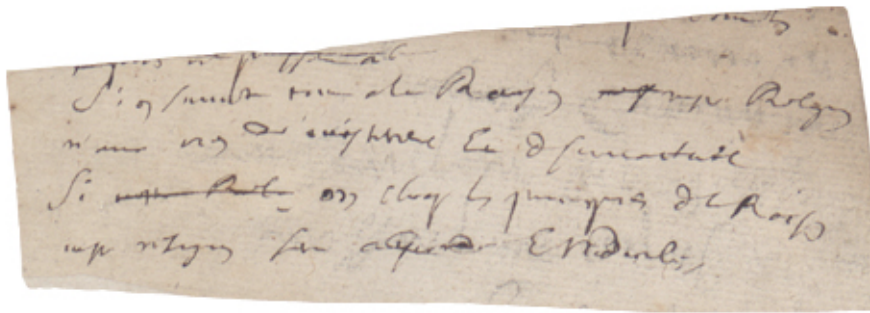 Si on soumet tout a la Raison nostre Religion
n'aura rien de misterieux Et de surnaturel
Si on choque les principes de la Raison
nostre religion sera absurde Et Ridicule,